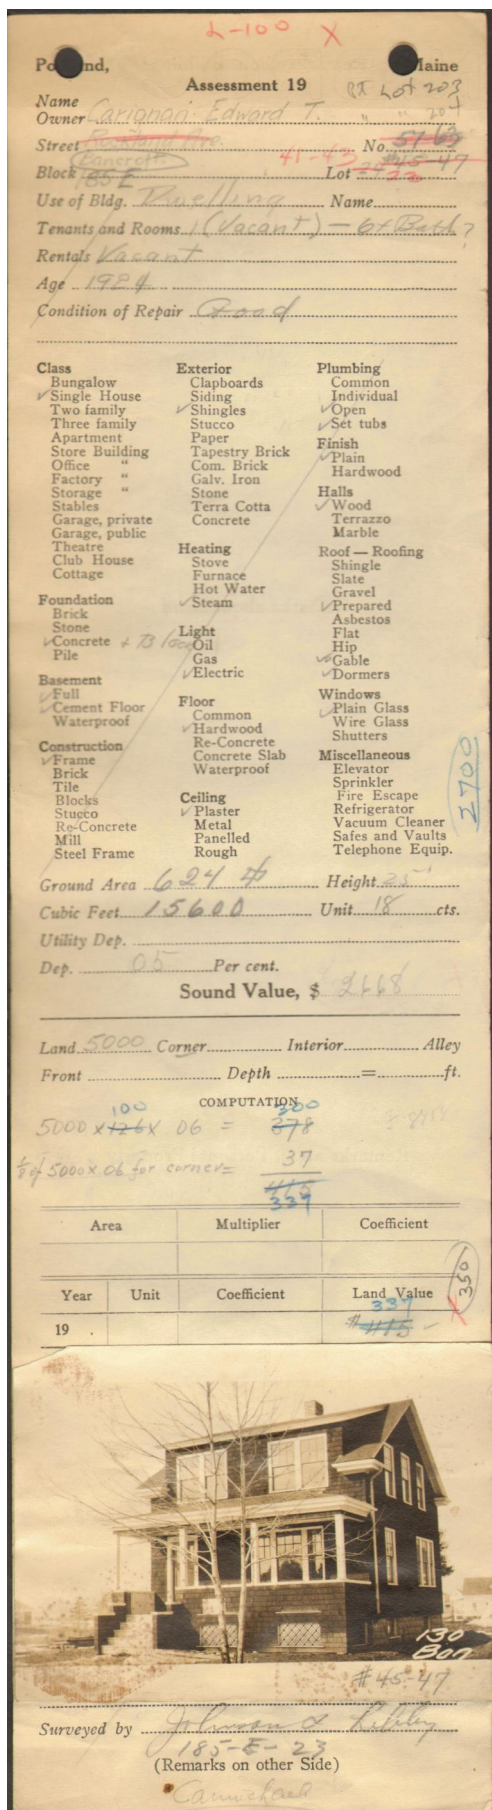 L-100 X
Portland, Maine
Assessment 19
PT Lot 203
" " 204
Name
Owner Carignan Edward T.
Street Rockland Ave. No. 51-63
Bancroft 41-43 #45-47
Block 185 E Lot 23
Use of Bldg. Dwelling Name
Tenants and Rooms 1 (Vacant) - 6+Bath?
Rentals Vacant
Age 1924
Condition of Repair Good
Class
Bungalow
✓Single House
Two family
Three family
Apartment
Store Building
Office "
Factory "
Storage "
Stables
Garage, private
Garage, public
Theatre
Club House
Cottage
Foundation
Brick
Stone
✓Concrete + Block
Pile
Basement
✓Full
✓Cement Floor
Waterproof
Construction
✓Frame
Brick
Tile
Blocks
Stucco
Re-Concrete
Mill
Steel Frame
Exterior
Clapboards
Siding
✓Shingles
Stucco
Paper
Tapestry Brick
Com. Brick
Galv. Iron
Stone
Terra Cotta
Concrete
Heating
Stove
Furnace
Hot Water
✓Steam
Light
Oil
Gas
✓Electric
Floor
Common
✓Hardwood
Re-Concrete
Concrete Slab
Waterproof
Ceiling
✓Plaster
Metal
Panelled
Rough
Plumbing
Common
Individual
✓Open
✓Set tubs
Finish
✓Plain
Hardwood
Halls
✓Wood
Terrazzo
Marble
Roof — Roofing
Shingle
Slate
Gravel
✓Prepared
Asbestos
Flat
Hip
✓Gable
✓Dormers
Windows
✓Plain Glass
Wire Glass
Shutters
Miscellaneous
Elevator
Sprinkler
Fire Escape
Refrigerator
Vacuum Cleaner
Safes and Vaults
Telephone Equip.
2700
Ground Area 624 Height 25'
Cubic Feet 15600 Unit 18 cts.
Utility Dep.
Dep. 05 Per cent.
Sound Value, $ 2668
Land 5000 Corner Interior Alley
Front Depth = ft.
COMPUTATION
100 300
5000 x 126 x 06 = 378
1/8 of 5000 x 06 for corner = 37
415
337
Area Multiplier Coefficient
350
Year Unit Coefficient Land Value
337
19 . #415
130
Ban
#45-47
Surveyed by Johnson & Libby
185-E-23
(Remarks on other Side)
Carmichael